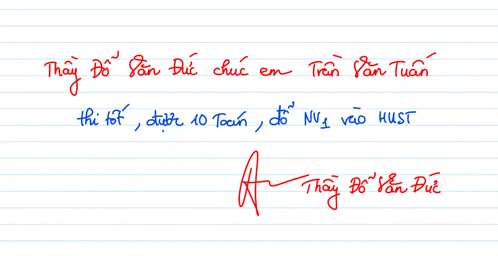 Thầy Đỗ Văn Đức chúc em Trần Văn Tuấn
thi tốt, được 10 Toán, đỗ NV1 vào HUST
Thầy Đỗ Văn Đức